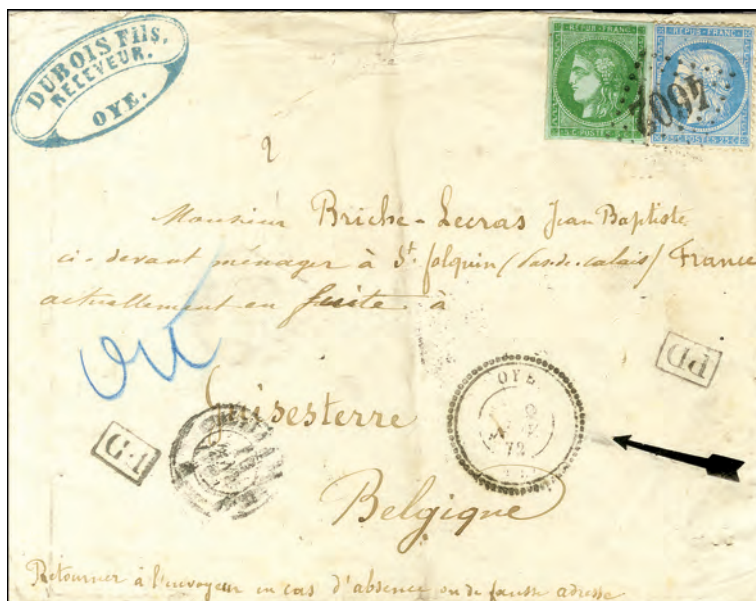 DUBOIS Fils,
RECEVEUR.
OYE.
REPUB · FRANC ·
5 · C · POSTE · 5 C
REPUB · FRANC ·
25 · C · POSTES · 25 · C
4502
2
Monsieur Briche-Lecras Jean Baptiste
ci-devant ménager à St. folquin (Pas-de-calais) France
actuellement en fuite à
PD
OYE
72
Guisesterre
G·1
Belgique
Retourner à l'envoyeur en cas d'absence ou de fausse adresse